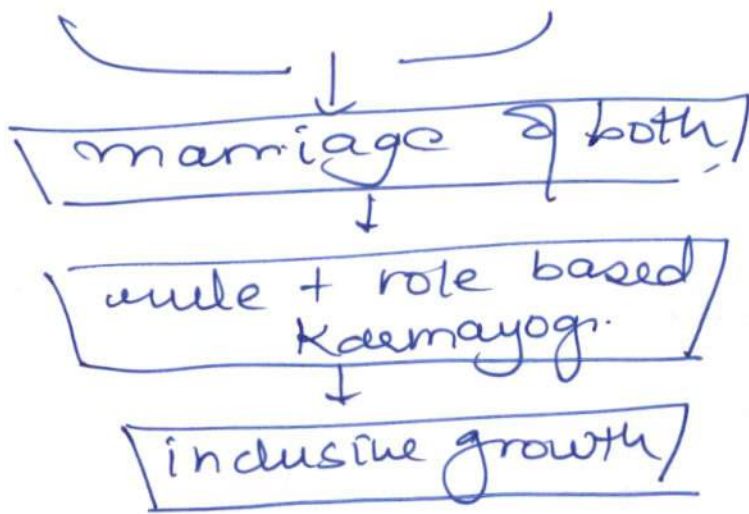 marriage of both
rule + role based
Karmayogi
inclusive growth